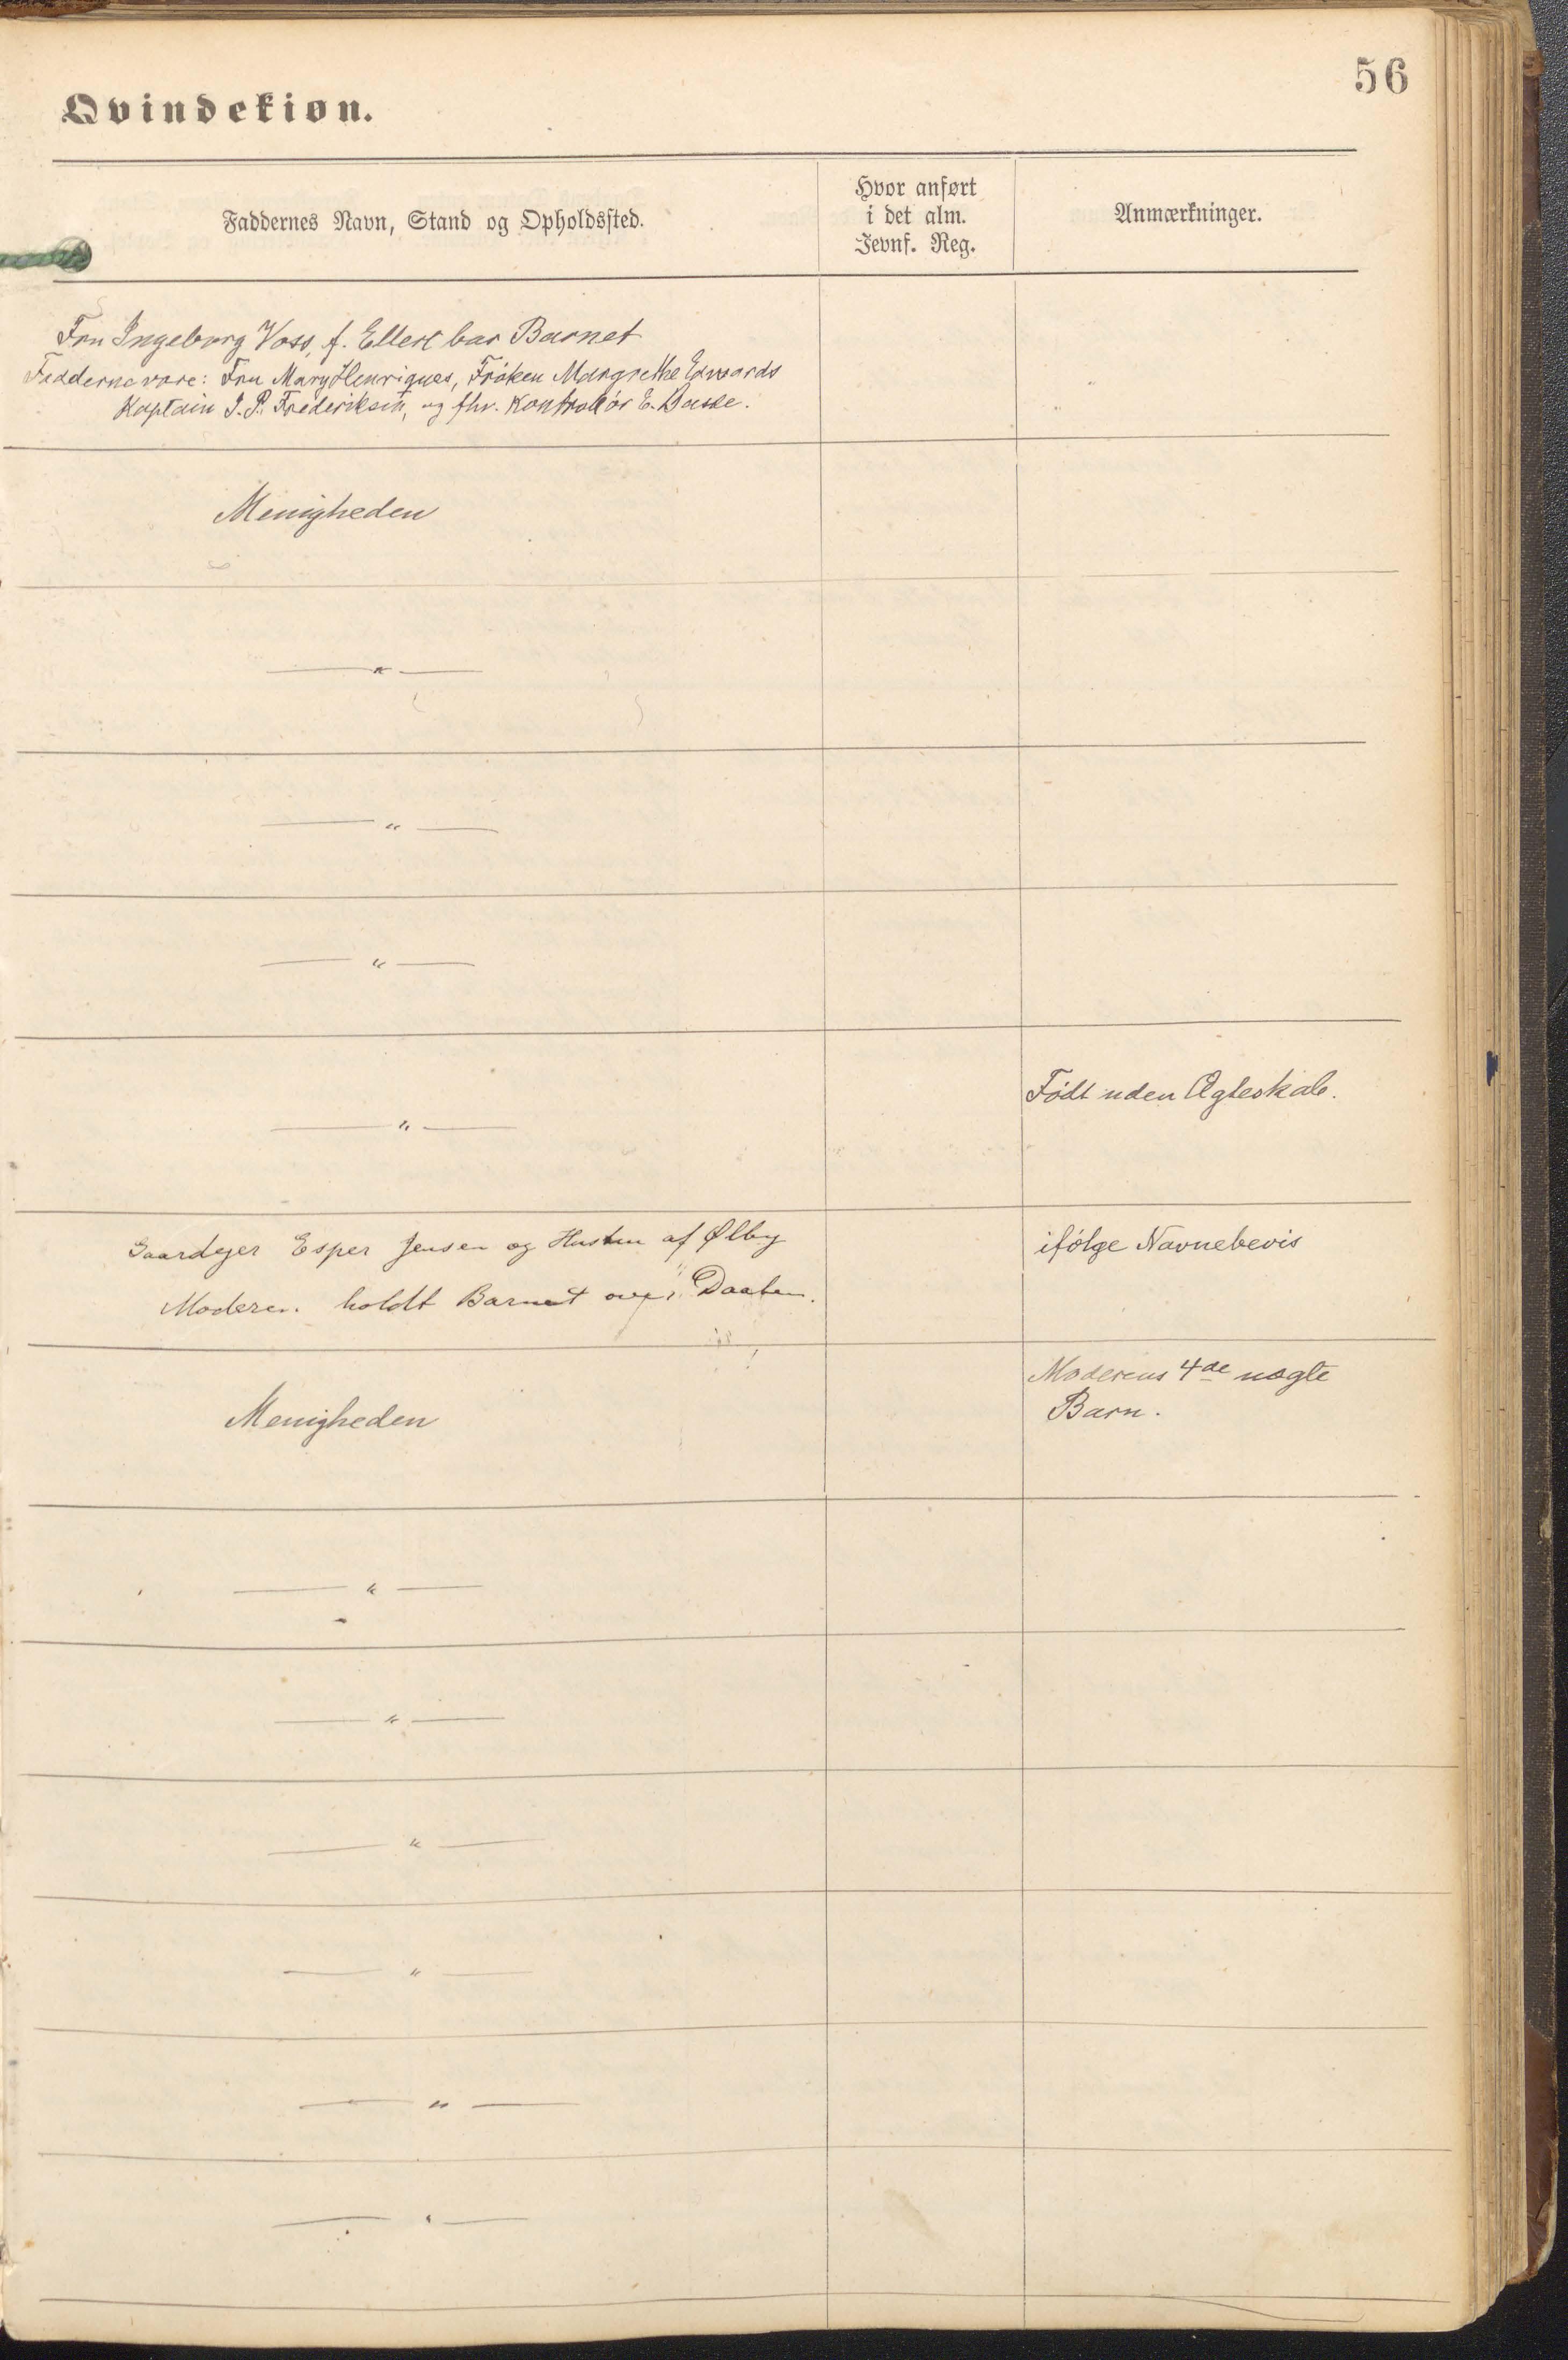 56
Qvindekiøn.
Faddernes Navn, Stand og Opholdssted.
Hvor anført
i det alm.
Jevnf. Reg.
Anmærkninger.
Fru Ingeborg Voss, f. Ellert bar Barnet
Fadderne vare: Fru Mary Henriques, Frøken Margrethe Edwards
Kaptain J. P. Frederiksen, og fhv. Kontrollør E.
Menigheden
— " —
— " —
— " —
— " —
Født uden Ægteskab.
Gaardejer Esper Jensen og Hustru af Ølby
Moderen holdt Barnet over Daaben.
ifølge Navnebevis
Menigheden
Moderens 4de uægte
Barn.
— " —
— " —
— " —
— " —
— " —
— " —